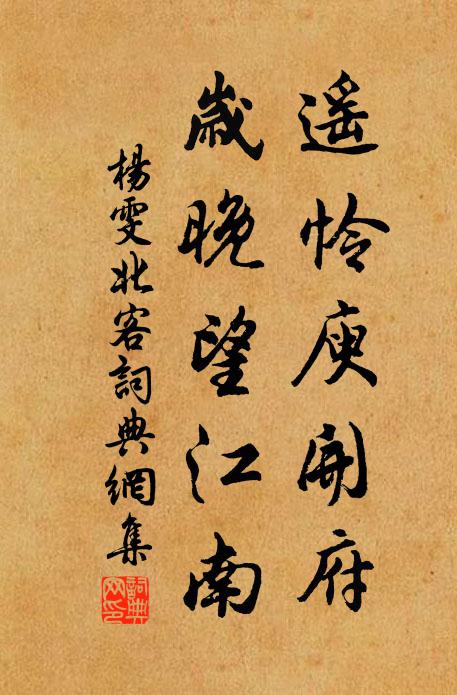 遥怜庾開府
歲晚望江南
楊雯北客詞典網集
詞典網印